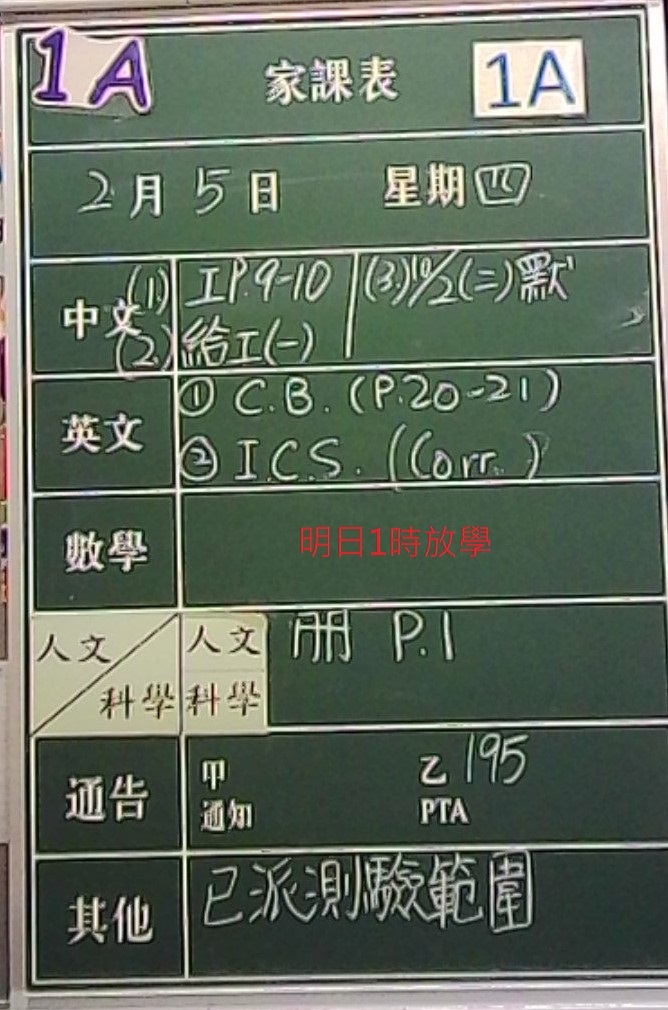 1A 家課表 1A
2月5日 星期四
中文 (1) 工P.9-10 (3) 10/2(二)默
(2) 給工(一)
英文 ① C.B. (P.20-21)
② I.C.S. (Corr.)
數學 明日1時放學
人文 科學 人文 科學 冊 P.1
通告 甲 乙 195
通知 PTA
其他 已派測驗範圍